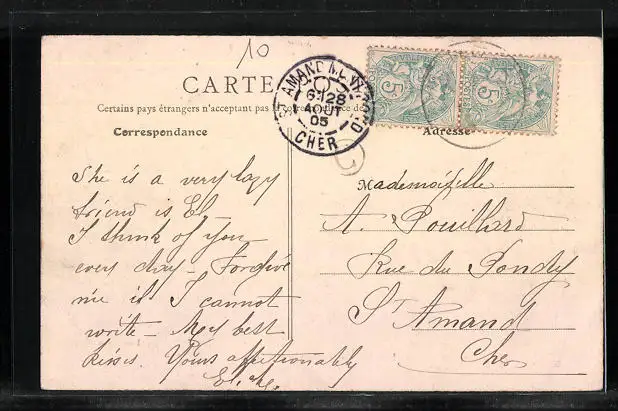 10
CARTE
Certains pays étrangers n'acceptent pas la correspondance de
Correspondance
Adresse
ST AMAND MONTROND
6 28
AOUT
05
CHER
5
5
She is a very lazy
friend is El.
I think of you
every day - Forgive
me if I cannot
write - My best
kisses. Yours affectionably
Mademoiselle
A. Pouillard
Rue du Pondy
St Amand
Cher